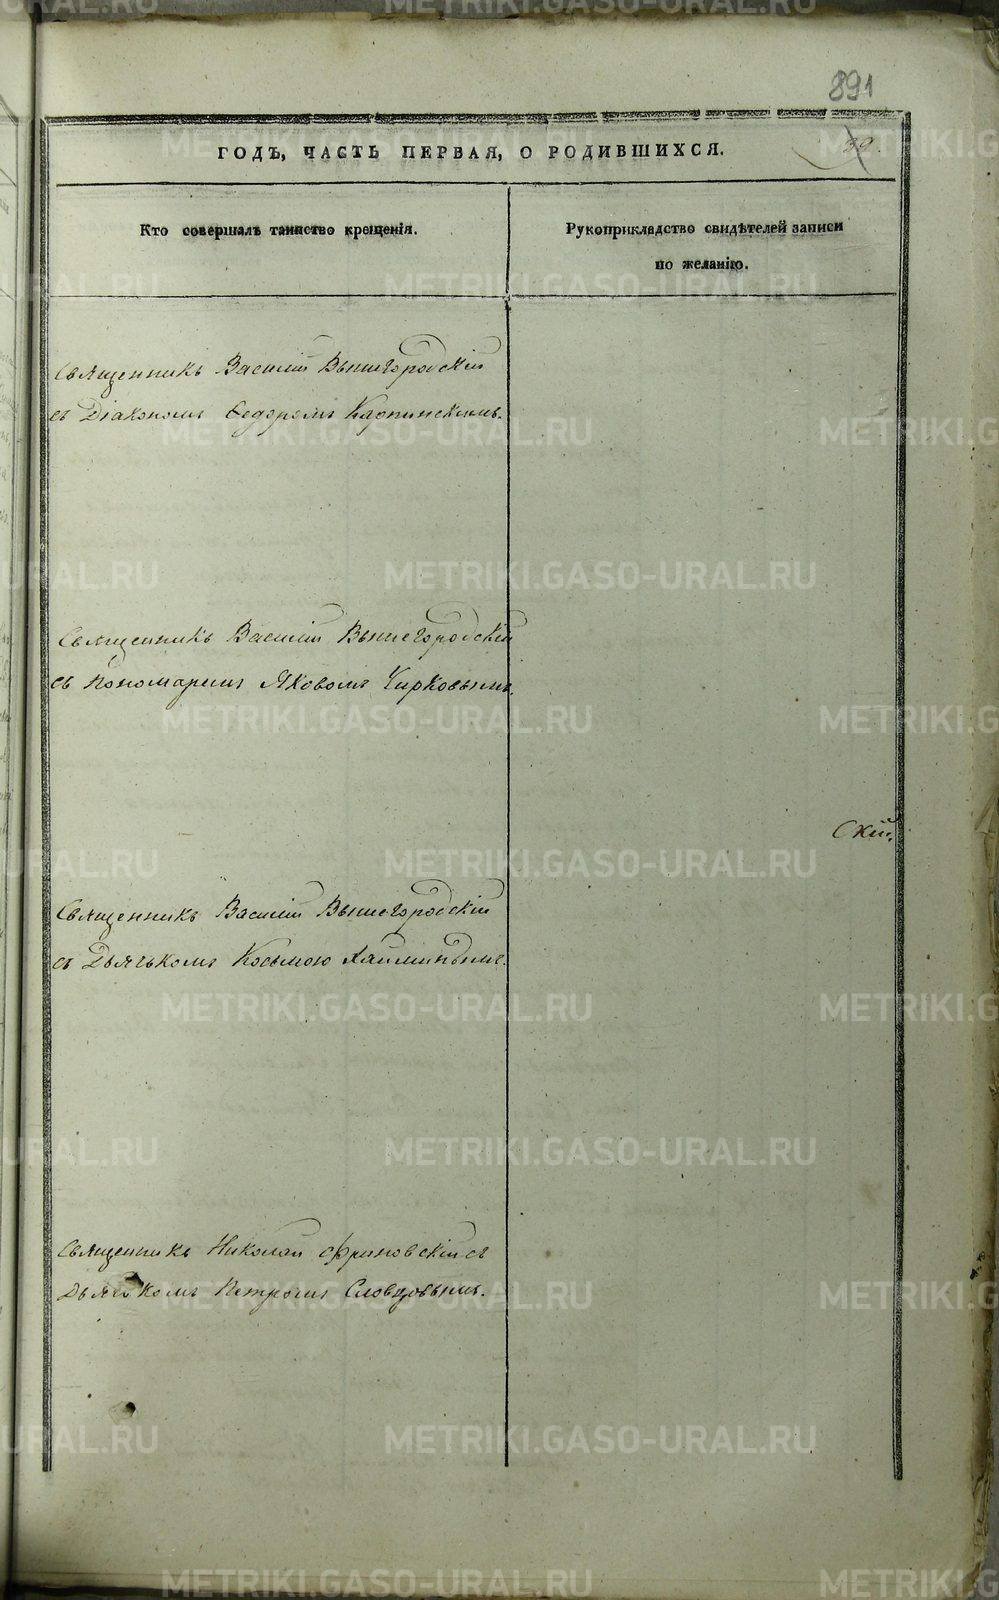 891
39.
ГОДЪ, ЧАСТЬ ПЕРВАЯ, О РОДИВШИХСЯ.
Кто совершалъ таинство крещенія.
Рукоприкладство свидѣтелей записи
по желанію.
Священникъ Василій Вышегородскій
съ Діакономъ Ѳедоромъ Карпинскимъ.
Священникъ Василій Вышегородскій
съ Пономаремъ Яковомъ Чирковымъ.
скій.
Священникъ Василій Вышегородскій
съ Дьячькомъ Косьмою
Священникъ Николай Фриновскій съ
Дьячкомъ Петромъ Словцовымъ.
METRIKI.GASO-URAL.RU